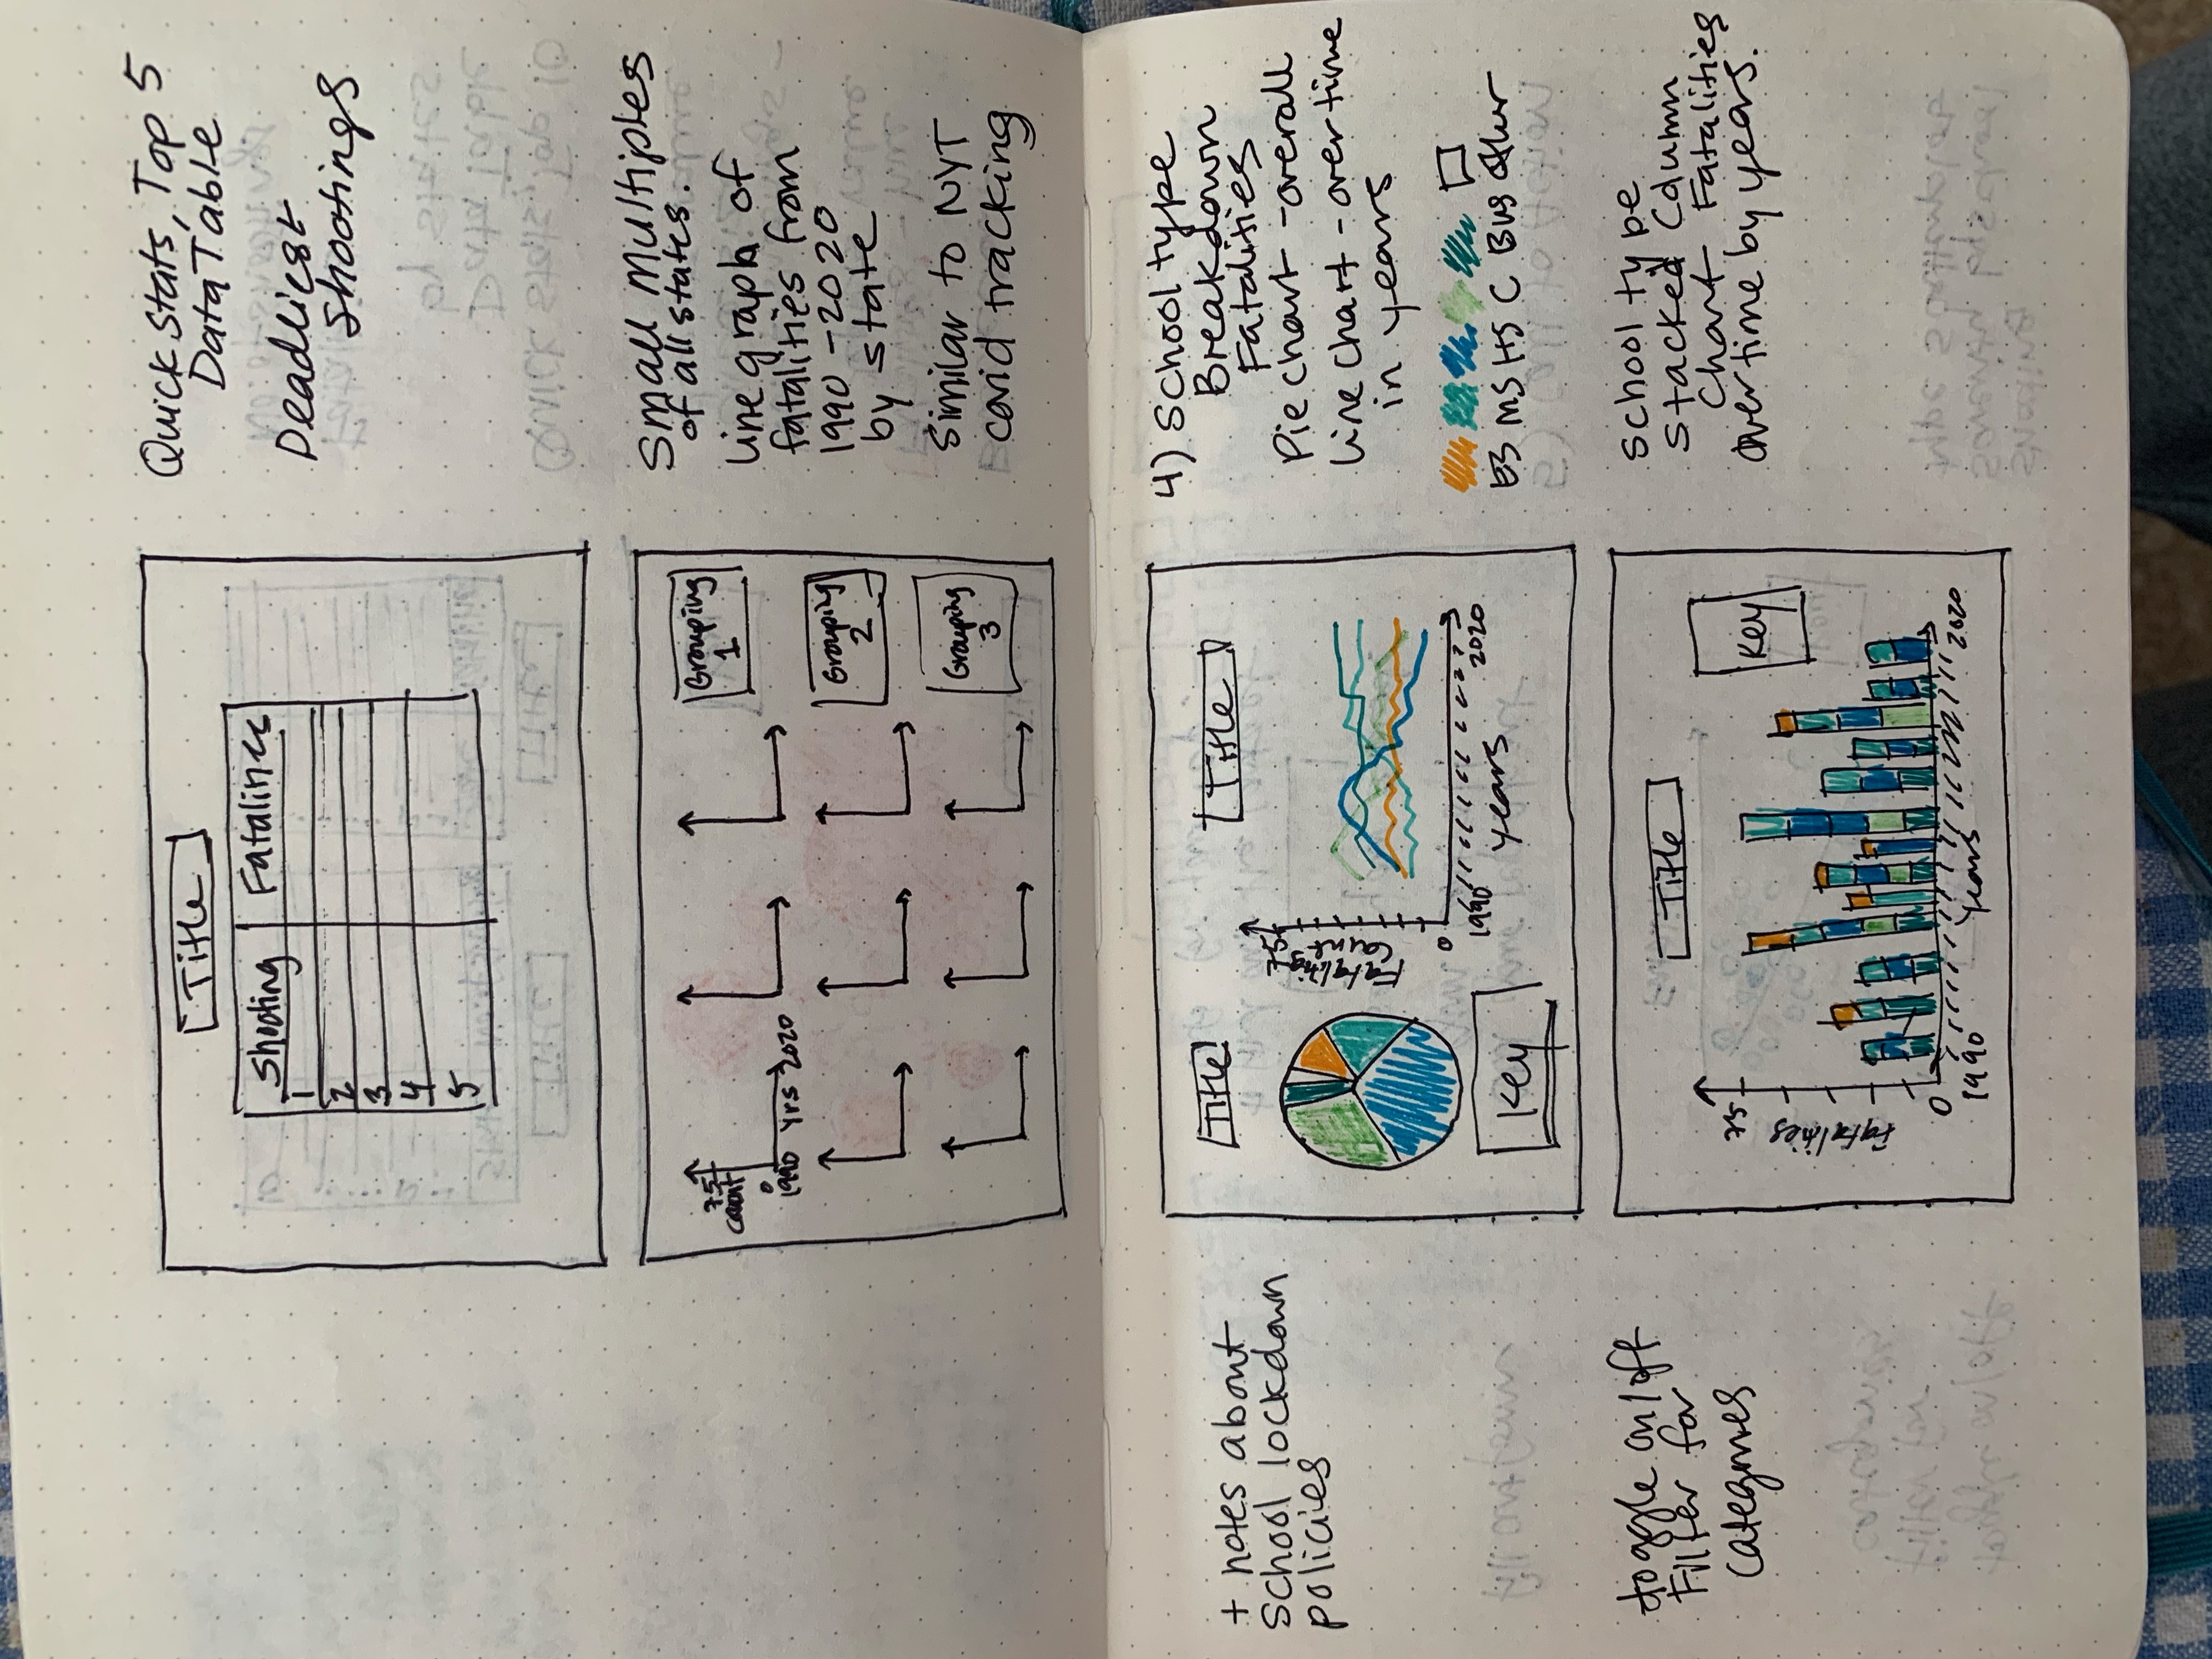 Title
Shooting Fatalities
1
2
3
4
5
Quick Stats, Top 5
Data Table
Deadliest
Shootings
75
count
0
1990 Yrs 2020
Grouping
1
Grouping
2
Grouping
3
Small Multiples
of all states.
Line graph of
fatalities from
1990 - 2020
by state
Similar to NYT
covid tracking
+ notes about
School lockdown
policies
Title
Title
Fatalities
Count
75
0
1990
2020
Years
Key
4) School type
Breakdown
Fatalities
Pie chart - overall
Line chart - over time
in years
ES MS HS C Bus Other
toggle on/off
Filter for
categories
Title
75
Fatalities
0
1990
Years
2020
Key
School type
Stacked Column
Chart Fatalities
over time by years.